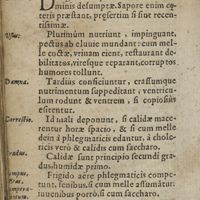 Dminis desumptæ. Sapore enim cę-
teris præstant, præsertim si sint recen-
tissimæ.
Usus: Plurimùm nutriunt, impinguant,
pectus ab eluuie mundant: cum mel-
le coctæ, vrinam cient, restaurant de-
bilitatos, viresque reparant, corruptos
humores tollunt.
Damna. Tardiùs conficiuntur, crassumque
nutrimentum suppeditant, ventricu-
lum rodunt & ventrem, si copiosius
esitentur.
Correctio. Id mali deponunt, si calidæ mace-
rentur horæ spacio, & si cum melle
dein à phlegmaticis edantur, à chole-
ricis verò & calidis cum saccharo.
Gradus. Calidæ sunt principio secundi gra-
dus, humidæ primo.
Tempus, Frigido aëre phlegmaticis compe-
Ætas, tunt, senibus, si cum melle assumātur:
iuuenibus porrò, si cum saccharo.